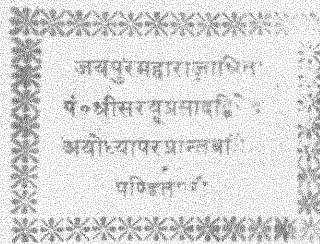 जयपुरमहाराजाश्रित
पं०श्रीसरयूप्रसादद्विवे
अयोध्यापरप्रान्तवा
पण्डित